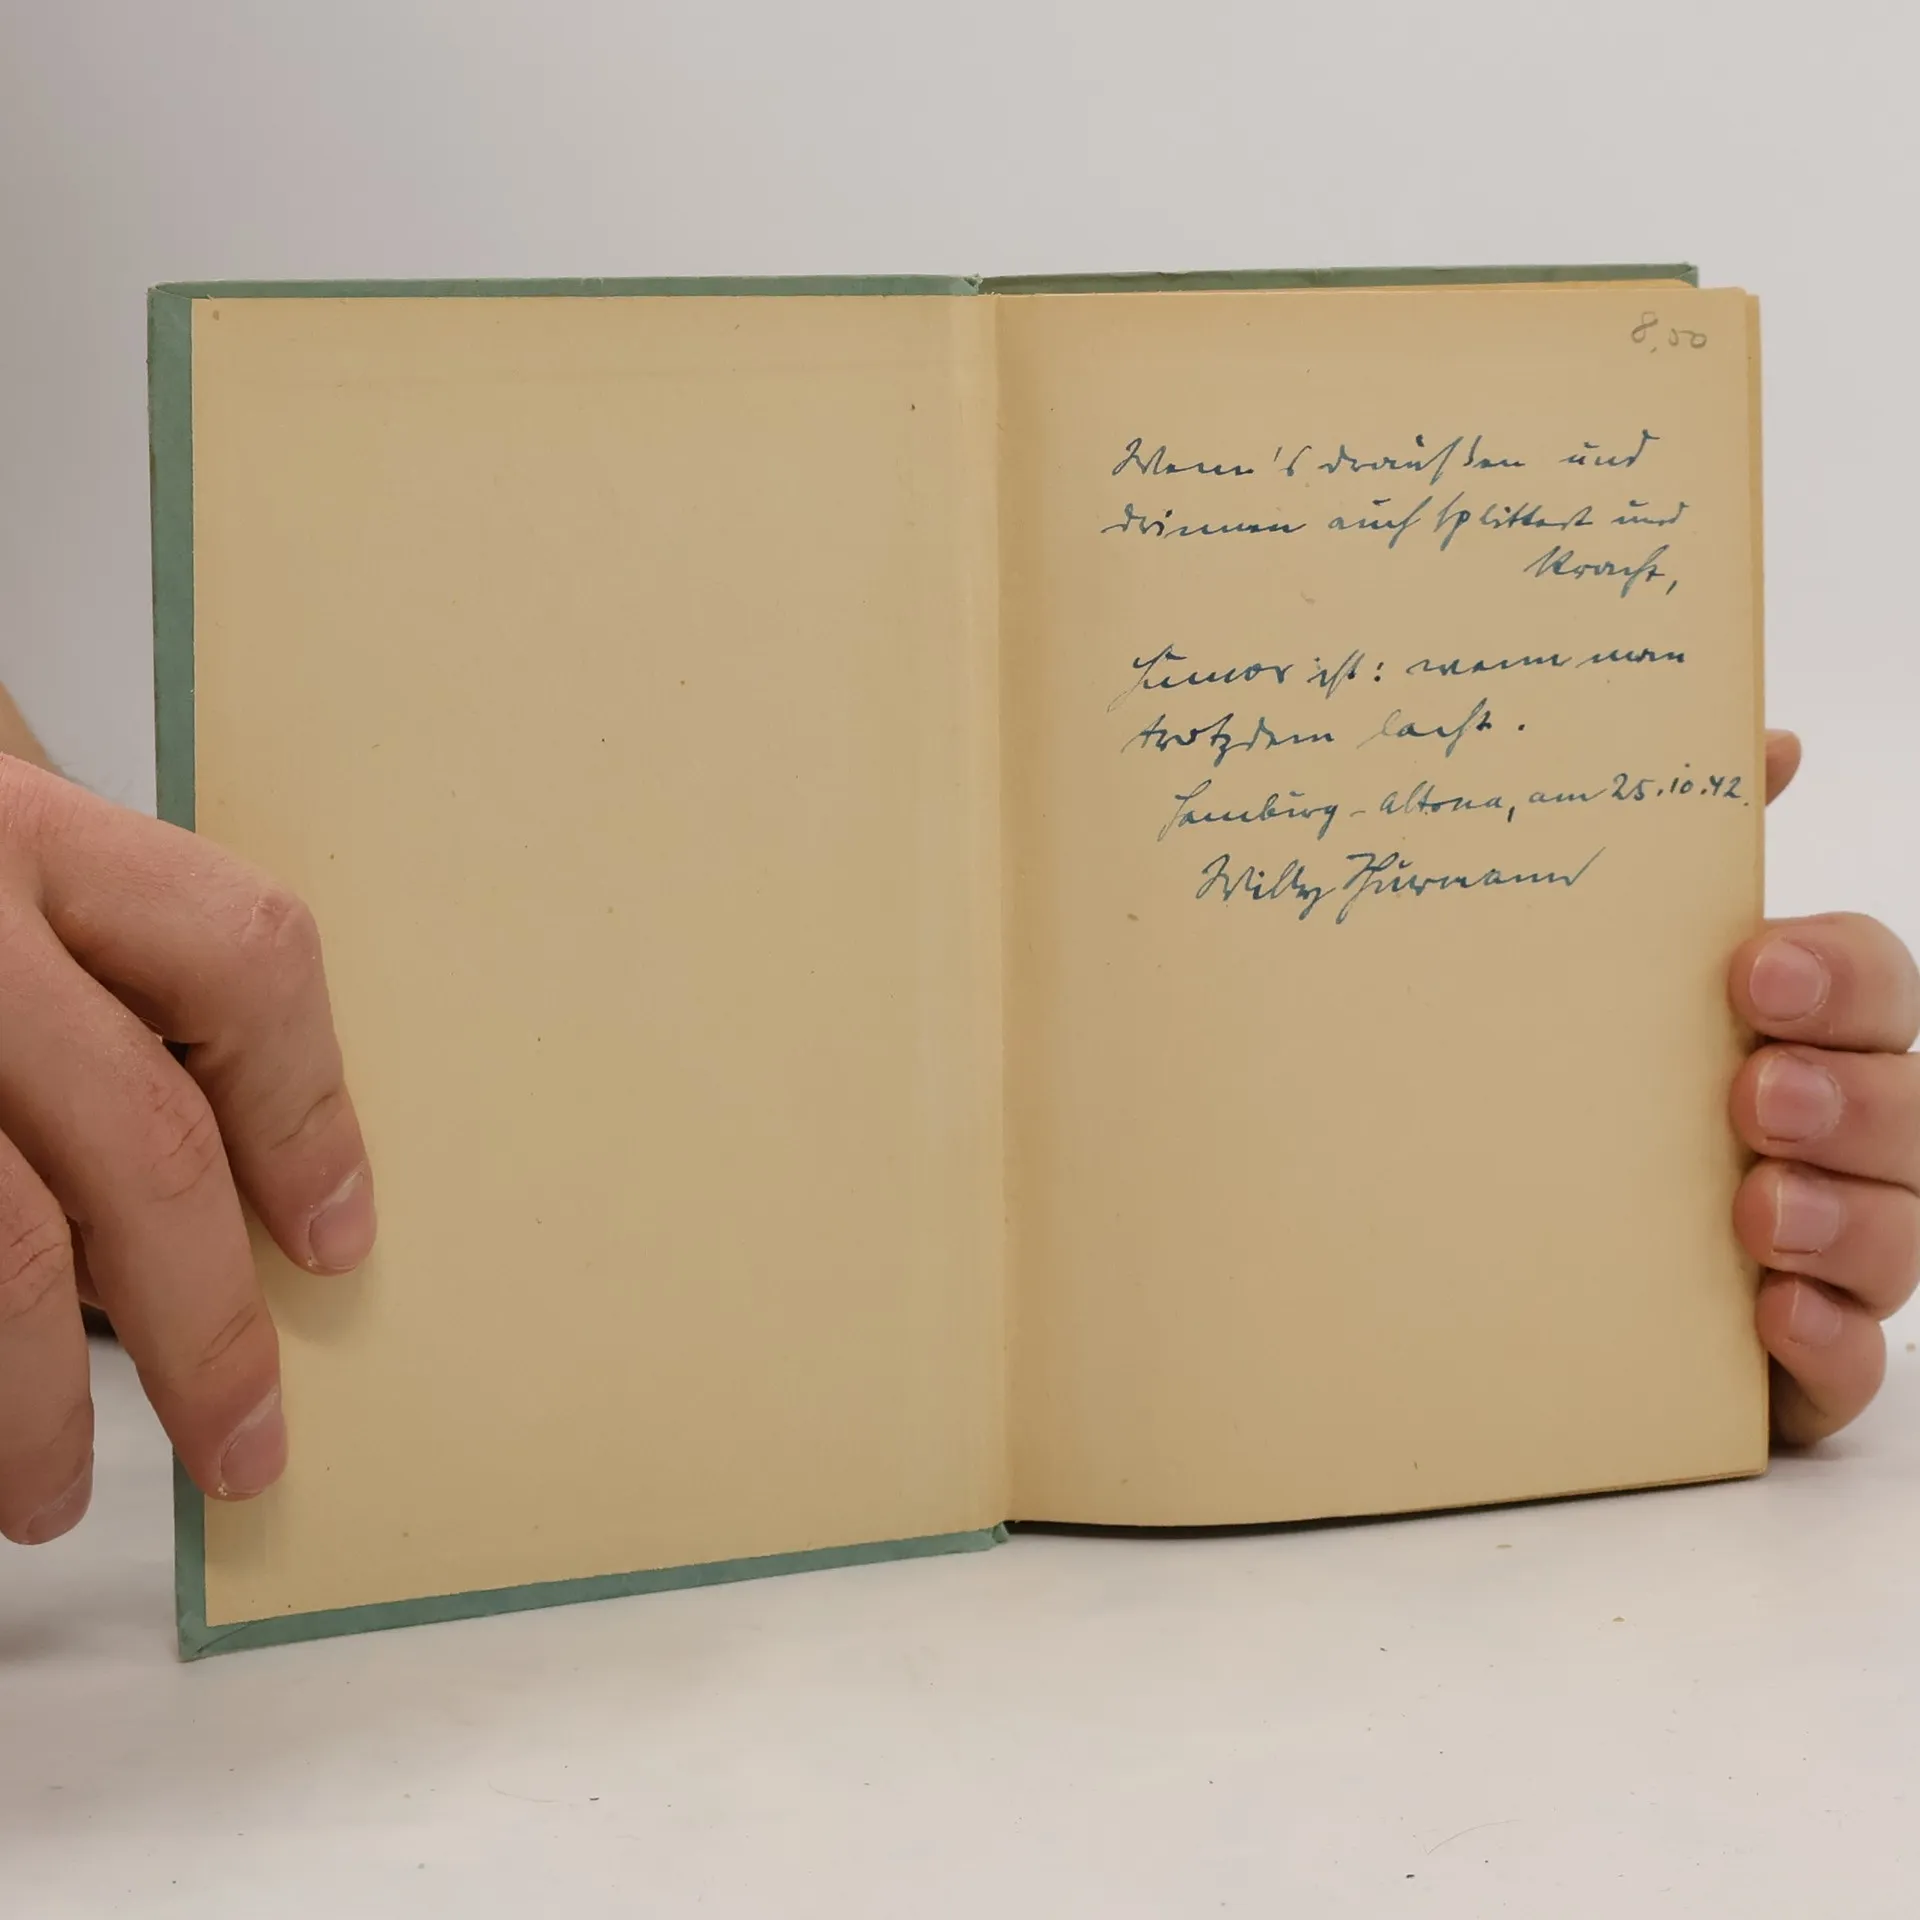 8,00
Wenn's draußen und
drinnen auch splittert und
kracht,
Humor ist: wenn man
trotzdem lacht.
Hamburg-Altona, am 25.10.42.
Willy Thurmann